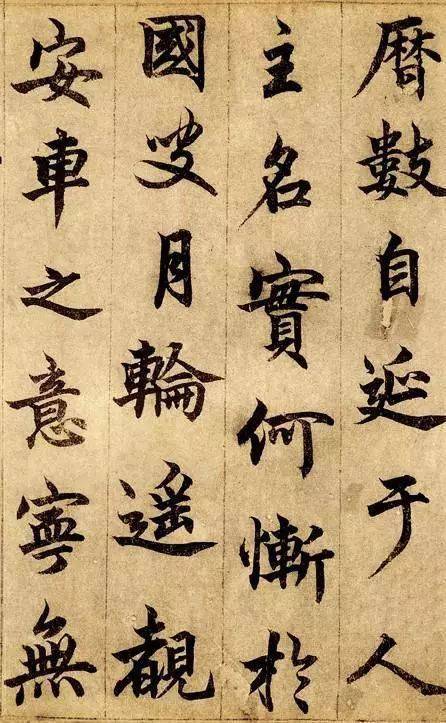 曆數自延于人
主名實何慚於
國叟月輪遥覩
安車之意寧無